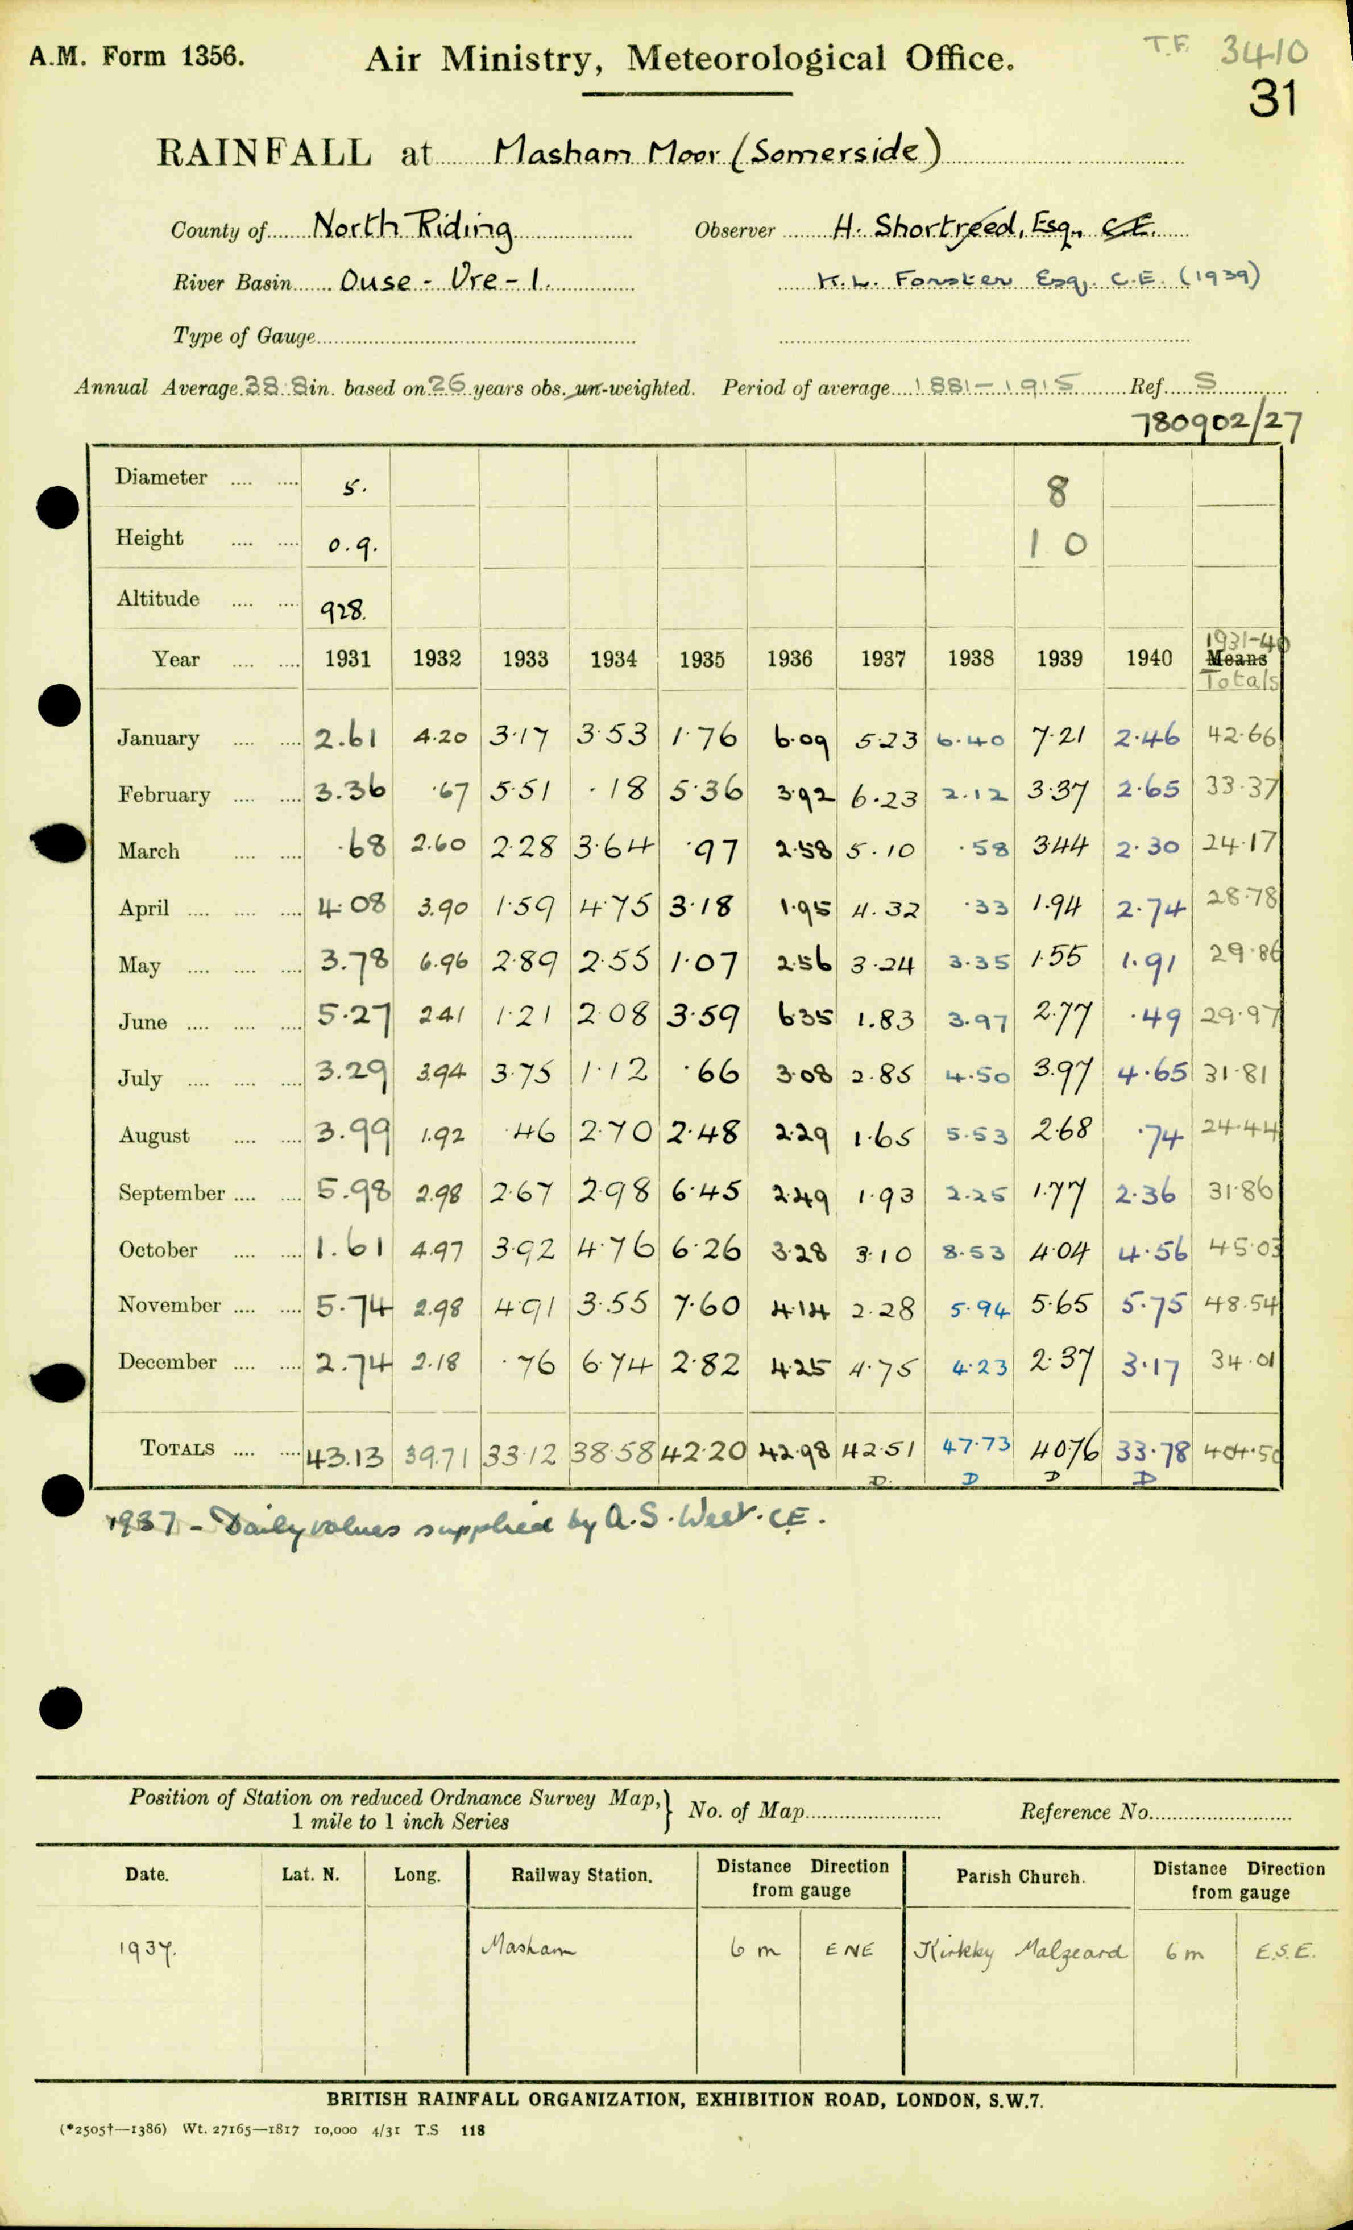 A.M. Form 1356.
Air Ministry, Meteorological Office.
T.F. 3410
31
RAINFALL at Masham Moor (Somerside)
County of North Riding Observer H. Shortreed, Esq., C.E.
River Basin Ouse - Ure - 1. K.L. Forster Esq. C.E. (1939)
Type of Gauge
Annual Average 38.8 in. based on 26 years obs. un-weighted. Period of average 1881-1915 Ref. S
780902/27
Diameter 5. 8
Height 0.9. 1 0
Altitude 928.
Year 1931 1932 1933 1934 1935 1936 1937 1938 1939 1940 1931-40 Means Totals
January 2.61 4.20 3.17 3.53 1.76 6.09 5.23 6.40 7.21 2.46 42.66
February 3.36 .67 5.51 .18 5.36 3.92 6.23 2.12 3.37 2.65 33.37
March .68 2.60 2.28 3.64 .97 2.58 5.10 .58 3.44 2.30 24.17
April 4.08 3.90 1.59 4.75 3.18 1.95 4.32 .33 1.94 2.74 28.78
May 3.78 6.96 2.89 2.55 1.07 2.56 3.24 3.35 1.55 1.91 29.86
June 5.27 2.41 1.21 2.08 3.59 6.35 1.83 3.97 2.77 .49 29.97
July 3.29 3.94 3.75 1.12 .66 3.08 2.85 4.50 3.97 4.65 31.81
August 3.99 1.92 .46 2.70 2.48 2.29 1.65 5.53 2.68 .74 24.44
September 5.98 2.98 2.67 2.98 6.45 2.49 1.93 2.25 1.77 2.36 31.86
October 1.61 4.97 3.92 4.76 6.26 3.28 3.10 8.53 4.04 4.56 45.03
November 5.74 2.98 4.91 3.55 7.60 4.14 2.28 5.94 5.65 5.75 48.54
December 2.74 2.18 .76 6.74 2.82 4.25 4.75 4.23 2.37 3.17 34.01
TOTALS 43.13 39.71 33.12 38.58 42.20 42.98 42.51 47.73 40.76 33.78 404.50
D. D D D
1937 - Daily values supplied by A.S. West. C.E.
Position of Station on reduced Ordnance Survey Map, } No. of Map Reference No.
1 mile to 1 inch Series
Date. Lat. N. Long. Railway Station. Distance Direction from gauge Parish Church. Distance Direction from gauge
1937. Masham 6 m ENE Kirkby Malzeard 6 m E.S.E.
BRITISH RAINFALL ORGANIZATION, EXHIBITION ROAD, LONDON, S.W.7.
(*2505†—1386) Wt. 27165—1817 10,000 4/31 T.S 118